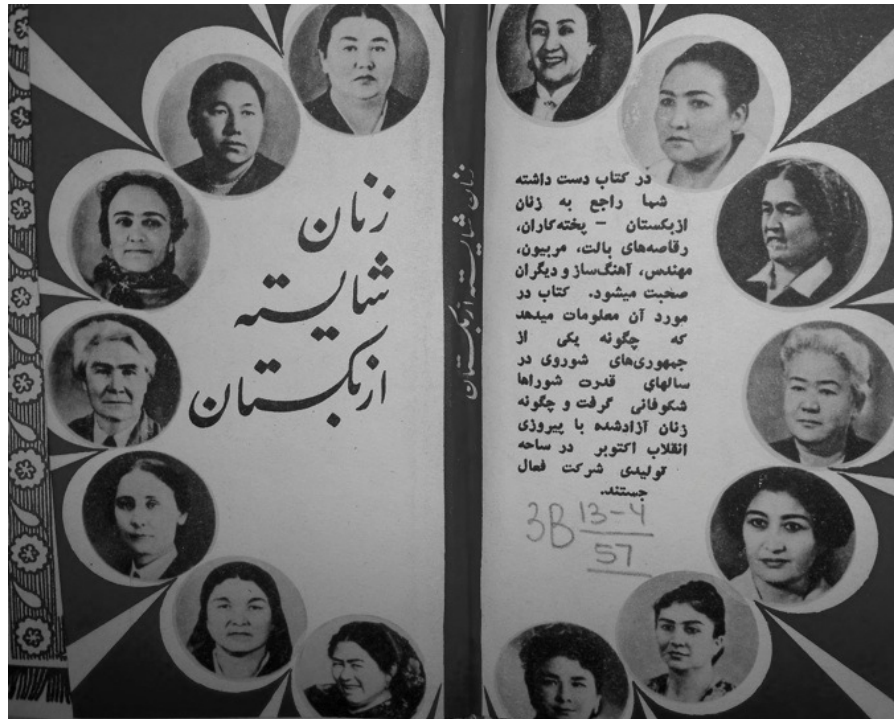 زنان
شایسته
ازبکستان
زنان شایسته ازبکستان
در کتاب دست داشته
شما راجع به زنان
ازبکستان – پخته‌کاران،
رقاصه‌های بالت، مربیون،
مهندس، آهنگ‌ساز و دیگران
صحبت میشود. کتاب در
مورد آن معلومات میدهد
که چگونه یکی از
جمهوری‌های شوروی در
سالهای قدرت شوراها
شکوفانی گرفت و چگونه
زنان آزادشده با پیروزی
انقلاب اکتوبر در ساحه
تولیدی شرکت فعال
جستند.
3B 13-4
57